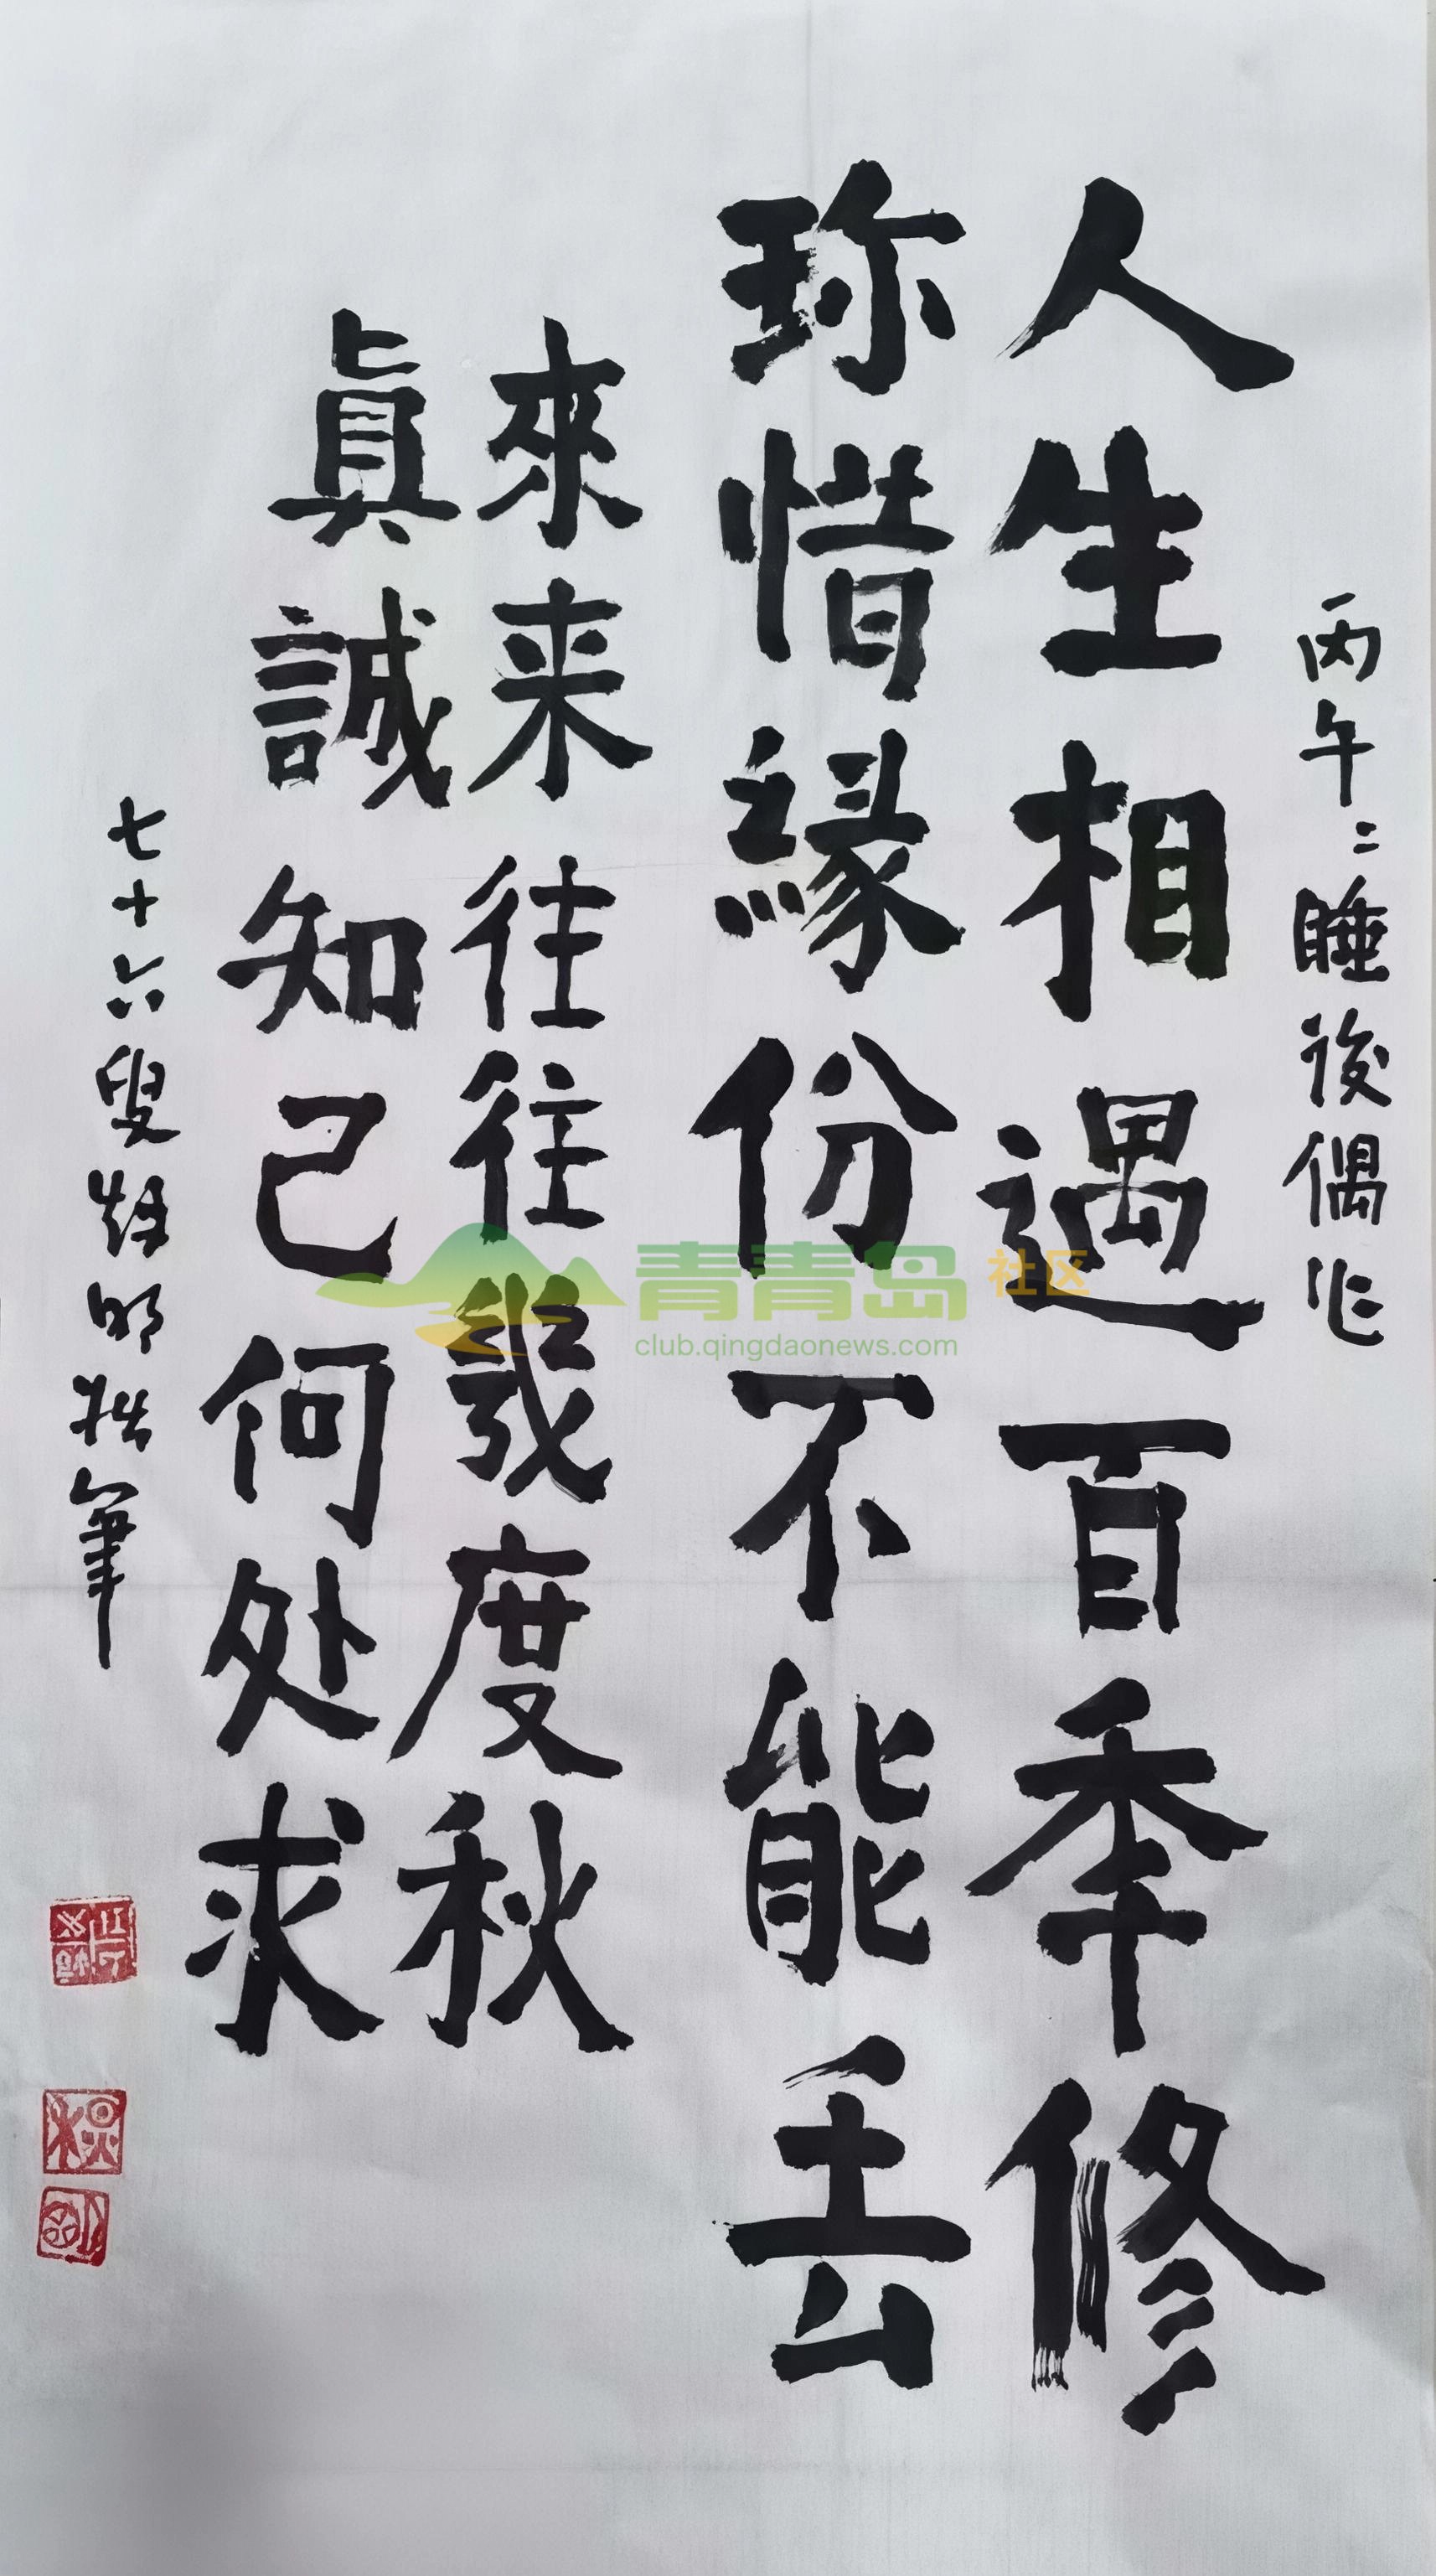 丙午二睡後偶作
人生相遇百季修
珎惜緣份不能丟
來来往往幾度秋
眞誠知己何处求
七十六叟 明拙筆
青青岛社区
club.qingdaonews.com